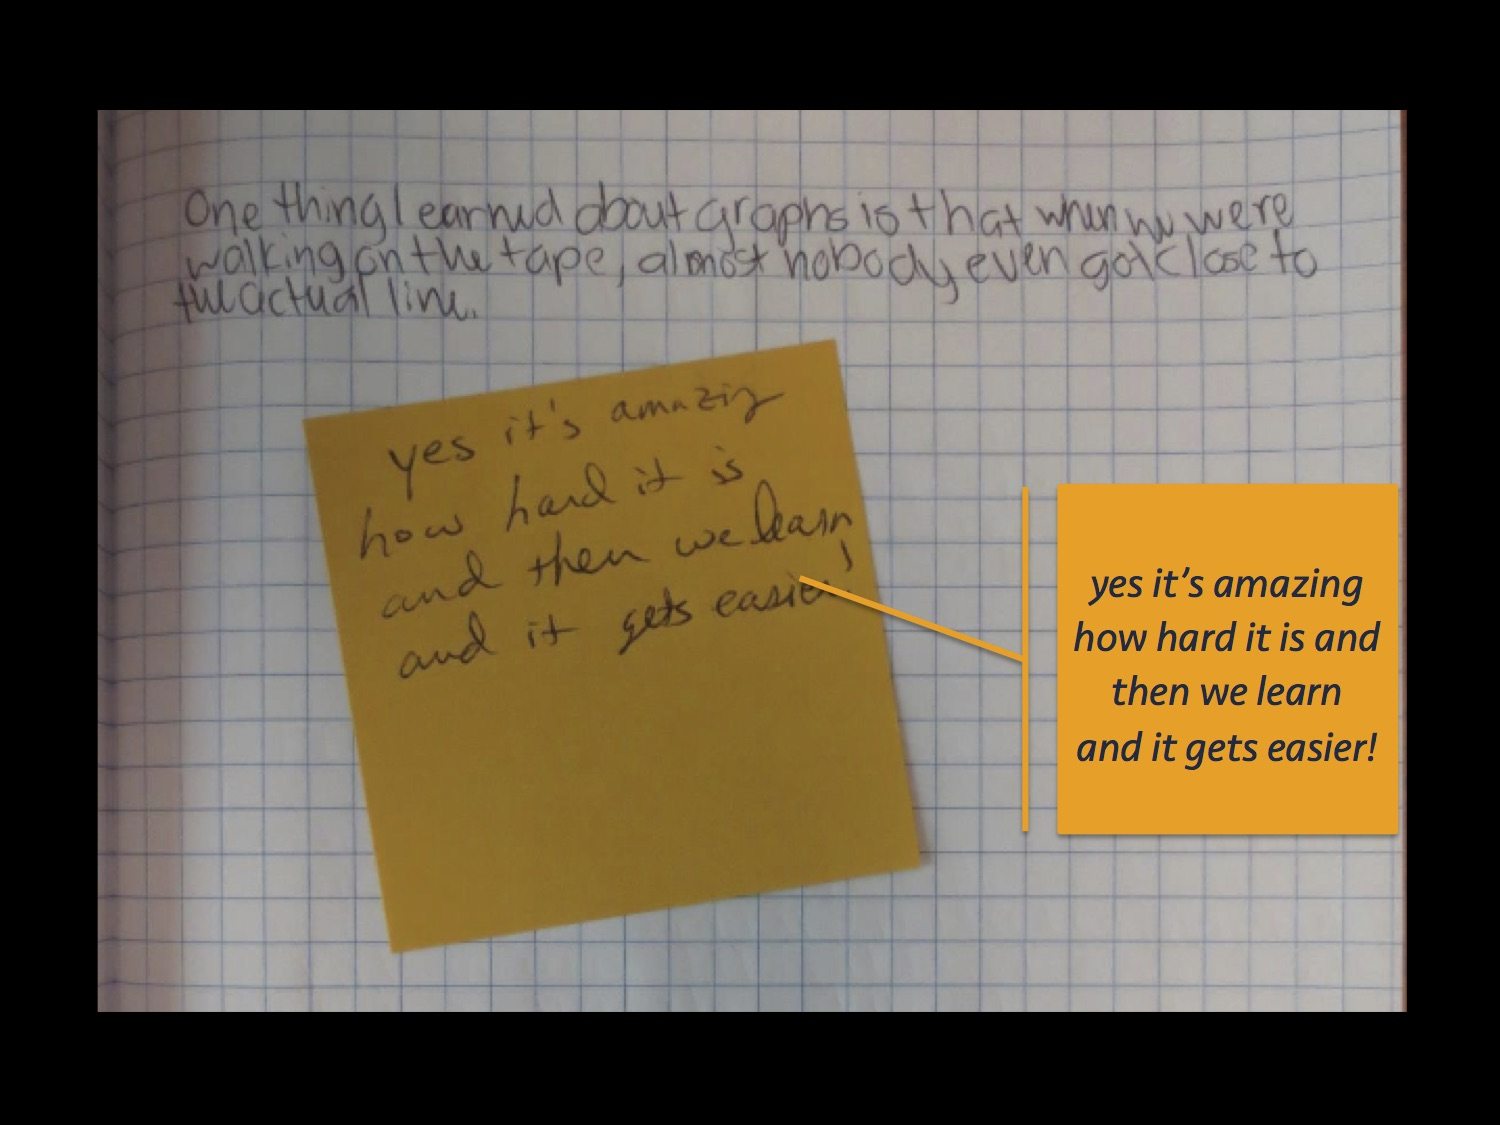 One thing I learned about graphs is that when we were
walking on the tape, almost nobody even got close to
the actual line.
yes it's amazing
how hard it is
and then we learn
and it gets easier!
yes it’s amazing
how hard it is and
then we learn
and it gets easier!